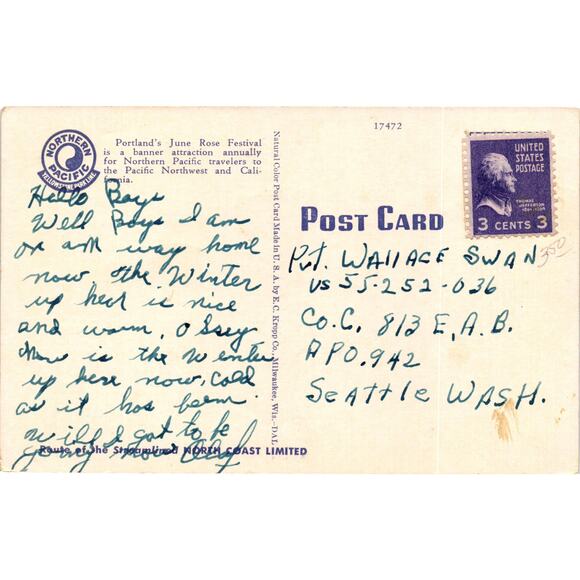 17472
NORTHERN
PACIFIC
YELLOWSTONE PARK LINE
Portland's June Rose Festival
is a banner attraction annually
for Northern Pacific travelers to
the Pacific Northwest and Cali-
fornia.
Hello Boys
Well Boys I am
on my way home
now the Winter
up her is nice
and warm,
How is the Winter
up here now, cold
as it has been.
Will I got to be
going now Olaf
Route of the Streamlined NORTH COAST LIMITED
Natural Color Post Card Made in U. S. A. by E. C. Kropp Co., Milwaukee, Wis.-DAL
POST CARD
UNITED
STATES
POSTAGE
THOMAS
JEFFERSON
1801-1809
3 CENTS 3
350
Pvt. WALLACE SWAN
US 55-252-036
Co. C. 813 E.A.B.
APO. 942
SEATTLE WASH.